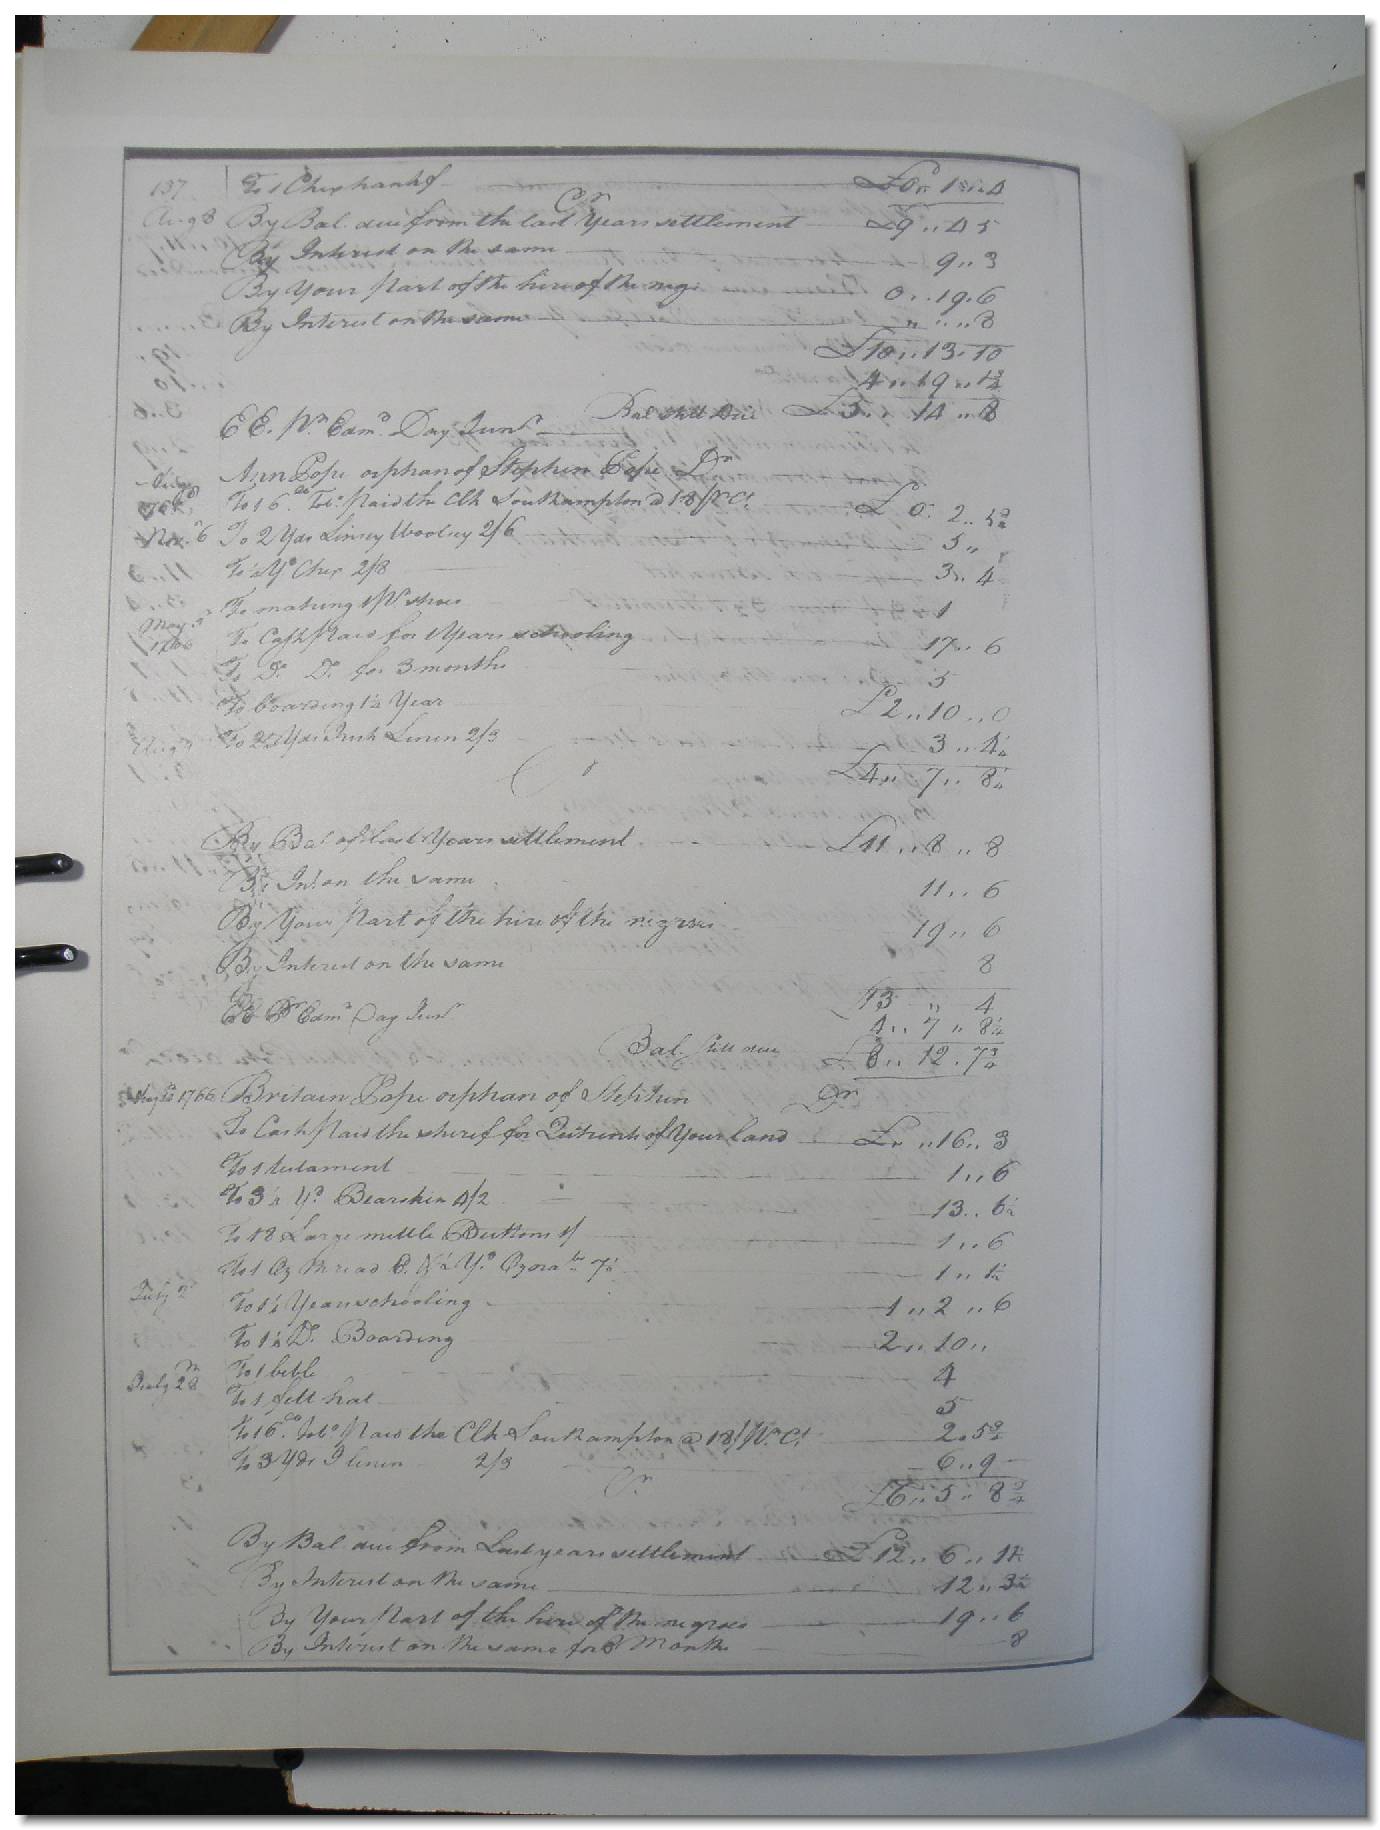 137 To 1 Chex hankf £0 „ 1 „ 4
Cr
Aug 8 By Bal. due from the last Years settlement £9 „ 4 5
By Interest on the same 9 „ 3
By Your part of the hire of the neg 0 „ 19 „ 6
By Interest on the same „ „ 8
£10 „ 13 „ 10
4 „ 19 „ 1¾
Bal still Due £5 „ 14 „ 8
EE. Pr Edmd Day Junr
Ann Pope orphan of Stephen Pope Dr
To 16 lb Tob. paid the Clk Southampton @ 18/ Pr Ct £ 0 „ 2 „ 5¾
Nov. 6 To 2 Yds Linsey Woolsey 2/6 5 „
To Yd Chex 2/8 3 „ 4
To making 1 Pr shoes 1
May 5 1766 To Cash paid for 1 Years schooling 17 „ 6
To Do. Do. for 3 months 5
To boarding 1¼ Year £2 „ 10 „ 0
Aug To Yds Irish Linen 2/3 3 „ 4½
£4 „ 7 „ 8¼
Cr
By Bal of last Years settlement £11 „ 8 „ 8
By Int on the same 11 „ 6
By Your part of the hire of the negroes 19 „ 6
By Interest on the same 8
13 „ „ 4
EE Pr Edmd Day Junr 4 „ 7 „ 8¼
Bal. still due £8 „ 12 „ 7¾
1766 Britain Pope orphan of Stephen Dr
To Cash paid the sheref for Quitrents of Your land £ „ 16 „ 3
To 1 testament 1 „ 6
To 3¼ Yd Bearskin 4/2 13 „ 6½
To 18 Large mettle Buttons 1/ 1 „ 6
To 1 Oz thread 6. Yd Ozna 7½ 1 „ 1½
July 2 To 1¼ Year schooling 1 „ 2 „ 6
To 1¼ Do. Boarding 2 „ 10 „
To 1 bible 4
July 28 To 1 felt hat 5
To 16 lb Tob. paid the Clk Southampton @ 18/ Pr Ct 2 „ 5¾
To 3 Yds I linen 2/3 6 „ 9
£6 „ 5 „ 8¾
Cr.
By Bal due from Last years settlement £12 „ 6 „ 1¼
By Interest on the same 12 „ 3½
By Your part of the hire of the negroes 19 „ 6
By Interest on the same for 8 Months 8